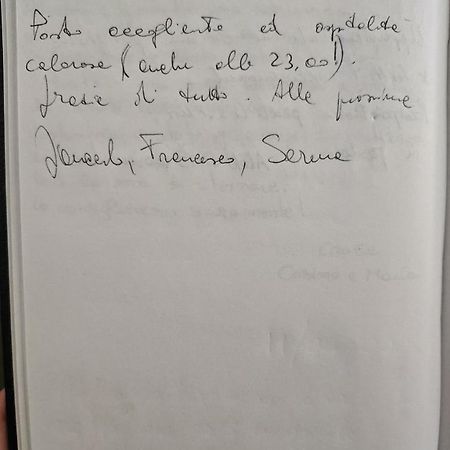 Posto accogliente ed ospitalità
calorosa (anche alle 23,00!).
Grazie di tutto. Alle prossime
Francesco, Serena